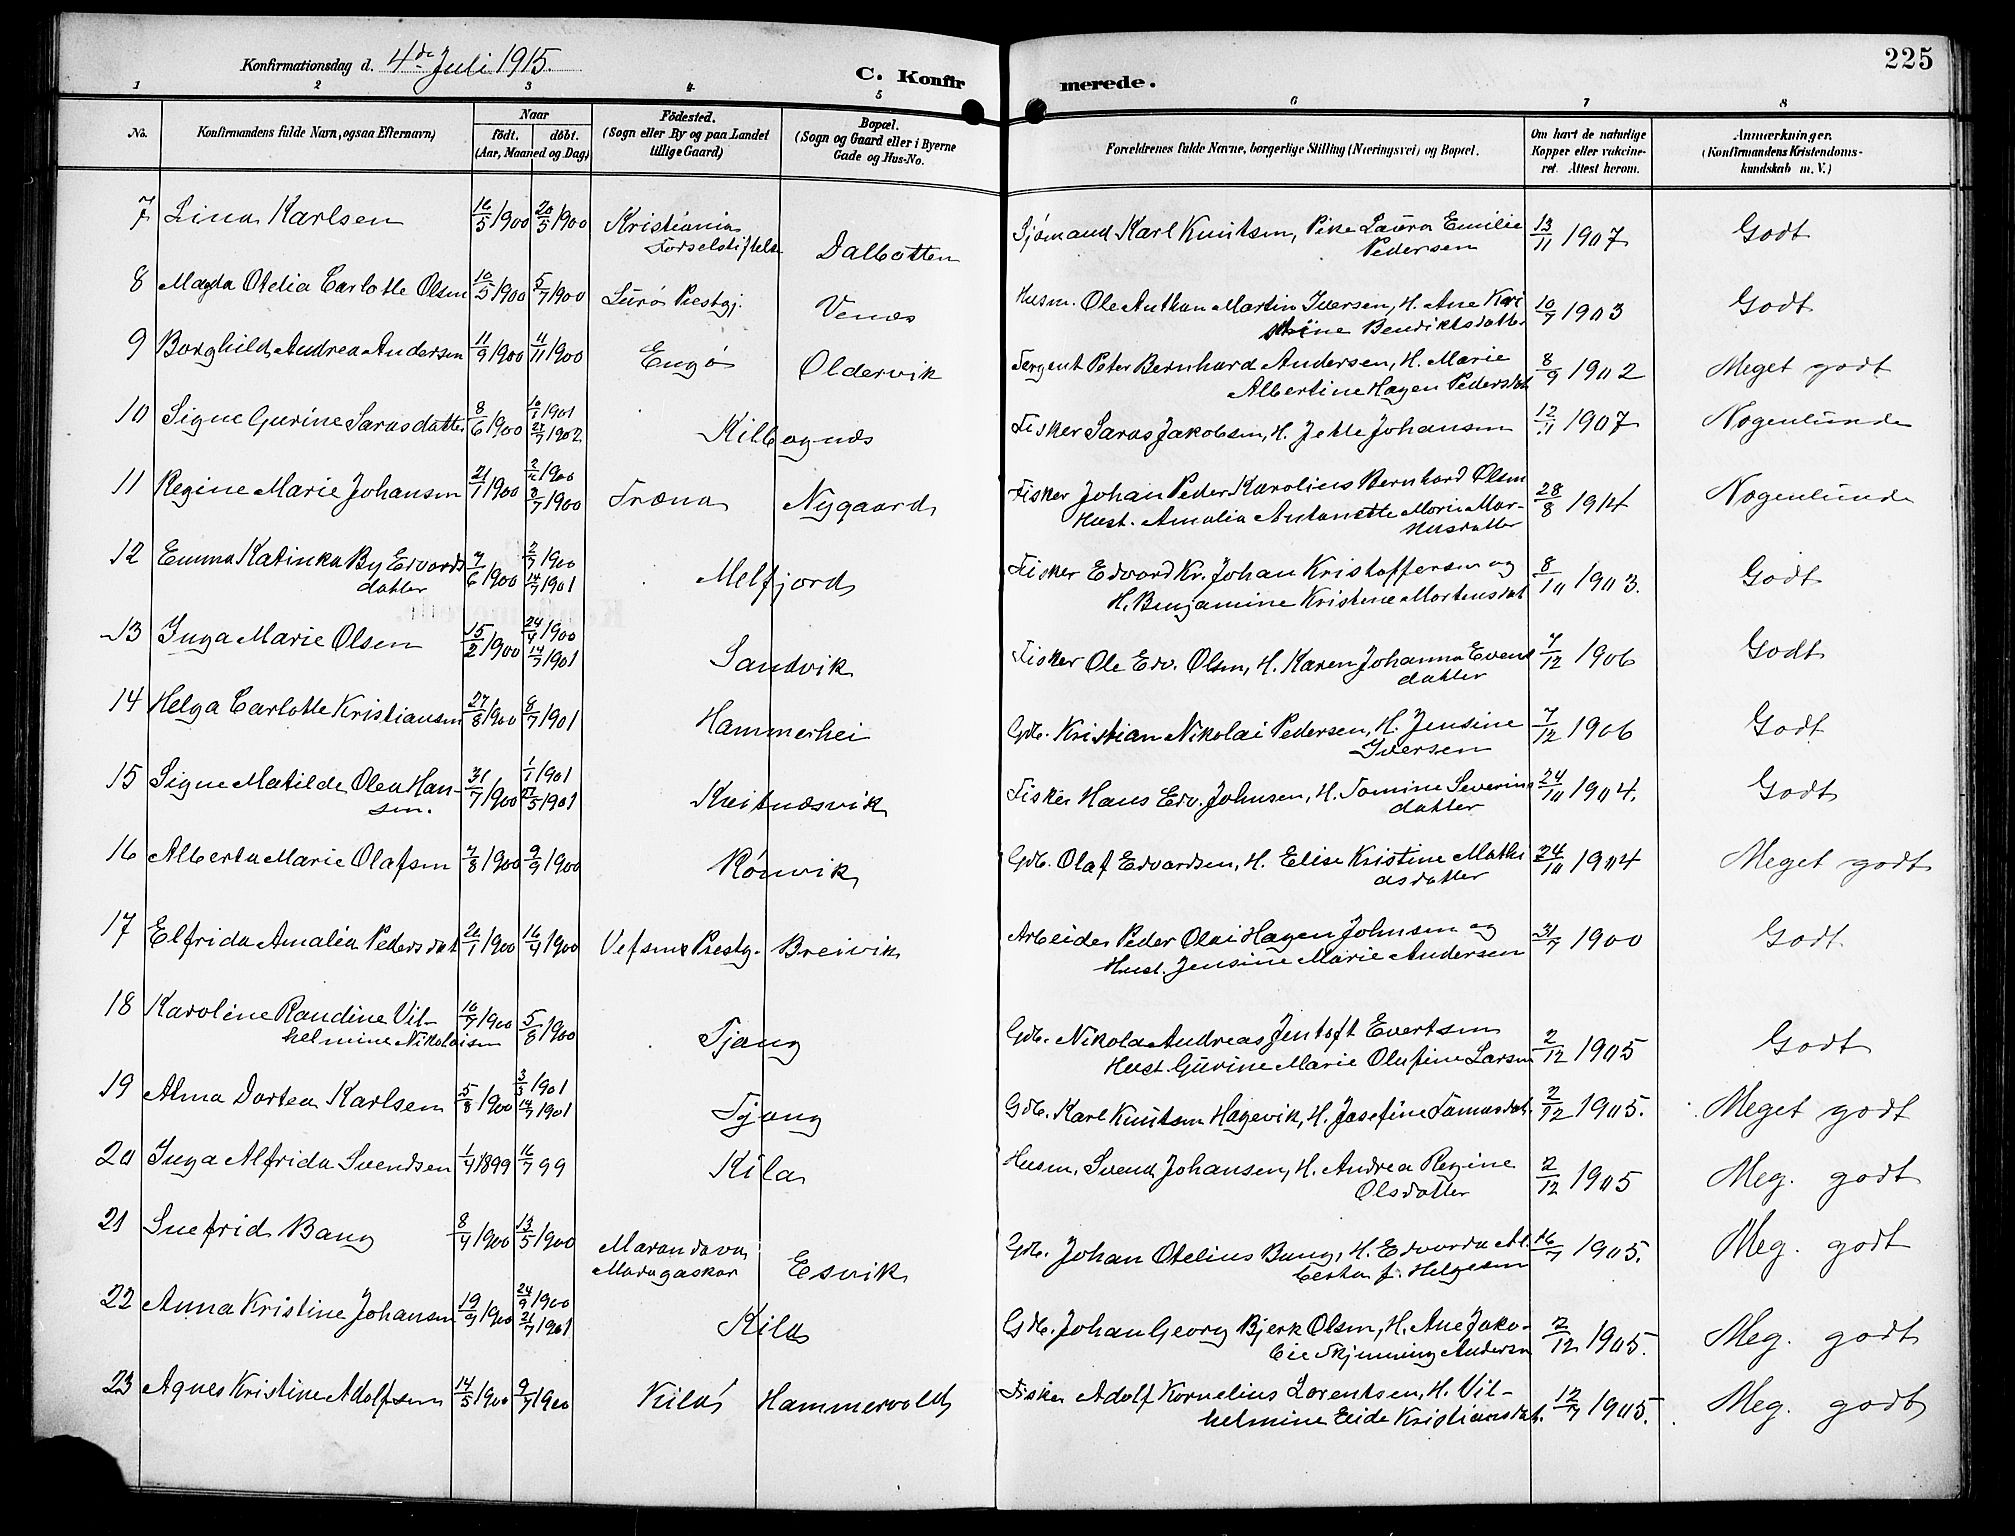 225
Konfirmationsdag d. 4de Juli 1915.
C. Konfirmerede.
1 2 3 4 5 6 7 8
No. Konfirmandens fulde Navn, ogsaa Efternavn) Naar födt. döbt. (Aar, Maaned og Dag) Födested. (Sogn eller By og paa Landet tillige Gaard) Bopæl. (Sogn og Gaard eller i Byerne Gade og Hus-No. Forældrenes fulde Navne, borgerlige Stilling (Næringsvei) og Bopæl. Om havt de naturlige Kopper eller vakcineret. Attest herom. Anmærkninger. (Konfirmandens Kristendomskundskab m. V.)
7 Lina Karlsen 16/5 1900 20/5 1900 Kristiania Födselstiftelse Dalbotten Sjømand Karl Knutsen, Pike Laura Emilie Pedersen 13/11 1907 Godt
8 Magda Otelia Carlotte Olsen 10/5 1900 5/7 1900 Lurø Prestgj. Venes Husm. Ole Anthon Martin Iversen, H. Ane Kristine Bendiktsdatter 10/7 1903 Godt
9 Borghild Andrea Andersen 11/9 1900 11/11 1900 Engø Oldervik Sergent Peter Bernhard Andersen, H. Marie Albertine Hagen Pedersdat 8/9 1902 Meget godt
10 Signe Gurine Sarasdatter 8/6 1900 10/1 1901 27/7 1902 Kilbognæs Fisker Saras Jakobsen, H. Jette Johansen 12/11 1907 Nogenlunde
11 Regine Marie Johansen 21/1 1900 2/2 1900 8/7 1900 Træna Nygaard Fisker Johan Peder Karolius Bernhard Olsen Hust. Amalia Antonette Marie Mariusdatter 28/8 1914 Nogenlunde
12 Emma Katinka By Edvardsdatter 7/6 1900 2/7 1900 14/7 1901 Melfjord Fisker Edvard Kr. Johan Kristoffersen og H. Benjamine Kristine Mortensdat 8/10 1903. Godt
13 Inga Marie Olsen 15/2 1900 24/4 1900 14/7 1901 Sandvik Fisker Ole Edv. Olsen, H. Karen Johanna Evensdatter 7/12 1906 Godt
14 Helga Carlotte Kristiansen 27/8 1900 8/7 1901 Hammerhei Gdb. Kristian Nikolai Pedersen, H. Jensine Iversen 7/12 1906 Godt
15 Signe Matilde Olea Hansen. 31/7 1900 1/1 1901 27/5 1901 Kreitnæsvik Fisker Hans Edv. Johnsen, H. Tomine Severinsdatter 24/10 1904. Godt
16 Alberta Marie Olafsen 7/8 1900 9/9 1900 Rönvik Gdb. Olaf Edvardsen, H. Elise Kristine Mathiasdatter 24/10 1904 Meget godt
17 Elfrida Amalia Pedersdat 26/1 1900 16/4 1900 Vefsens Prestg. Breivik Arbeider Peder Olai Hagen Johnsen og Hust. Jensine Marie Andersen 31/7 1900 Godt
18 Karoline Randine Vilhelmine Nikolaisen 10/7 1900 5/8 1900 Tjang Gdb. Nikolai Andreas Jentoft Evertsen Hust. Gurine Marie Olufine Larsen 2/12 1905 Godt
19 Alma Dortea Karlsen 5/8 1900 3/3 1901 14/7 1901 Tjang Gdb. Karl Knutsen Hagevik, H. Josefine Tomasdat. 2/12 1905. Meget godt
20 Inga Alfrida Svendsen 1/4 1899 16/7 99 Kila Husm. Svend Johansen, H. Andrea Regine Olsdatter 2/12 1905 Meg. godt
21 Snefrid Bang 8/4 1900 13/5 1900 Marandava Madagaskar Esvik Gdb. Johan Otelius Bang, H. Edvarda Alberta f. Helgesen 16/7 1905. Meg. godt
22 Anna Kristine Johansen 19/9 1900 24/9 1900 21/7 1901 Kila Gdb. Johan Georg Bjerk Olsen, H. Ane Jakobie Skjenning Andersen 2/12 1905. Meg. godt
23 Agnes Kristine Adolfsen 14/5 1900 9/7 1900 Kila Hammervold Fisker Adolf Kornelius Lorentsen, H. Vilhelmine Eide Kristiansdat. 12/7 1905. Meg. godt